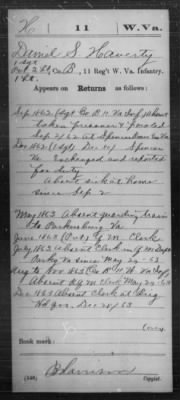 H | 11 | W. Va.
Daniel S. Haverty
1 Sgt
Pvt 2 Lt, Co. B., 11 Reg't W. Va. Infantry.
1 Lt.
Appears on Returns as follows:
Sep 1862 (Sgt) Co B 11 Va Inf
taken prisoner & paroled
Sep 2/62 at Spencer
Dec 1862 (1 Sgt) Dec Spencer
Va Exchanged and reported
for duty
Absent sick at home
since Sep 2
May 1863 Absent guarding train
to Parkersburg Va
June 1863 (Pvt) Q M. Clerk
July 1863 Absent Clerk in Q M Dept
Parkg Va since May 29-63
Aug to Nov 1863 Co B 11 W. Va Inf
Absent A Q M Clerk May 29-63
Dec 1863 Absent Clerk at Brig
Hd Qrs. Dec 28/63
(over)
Book mark:
(546)
Copyist.